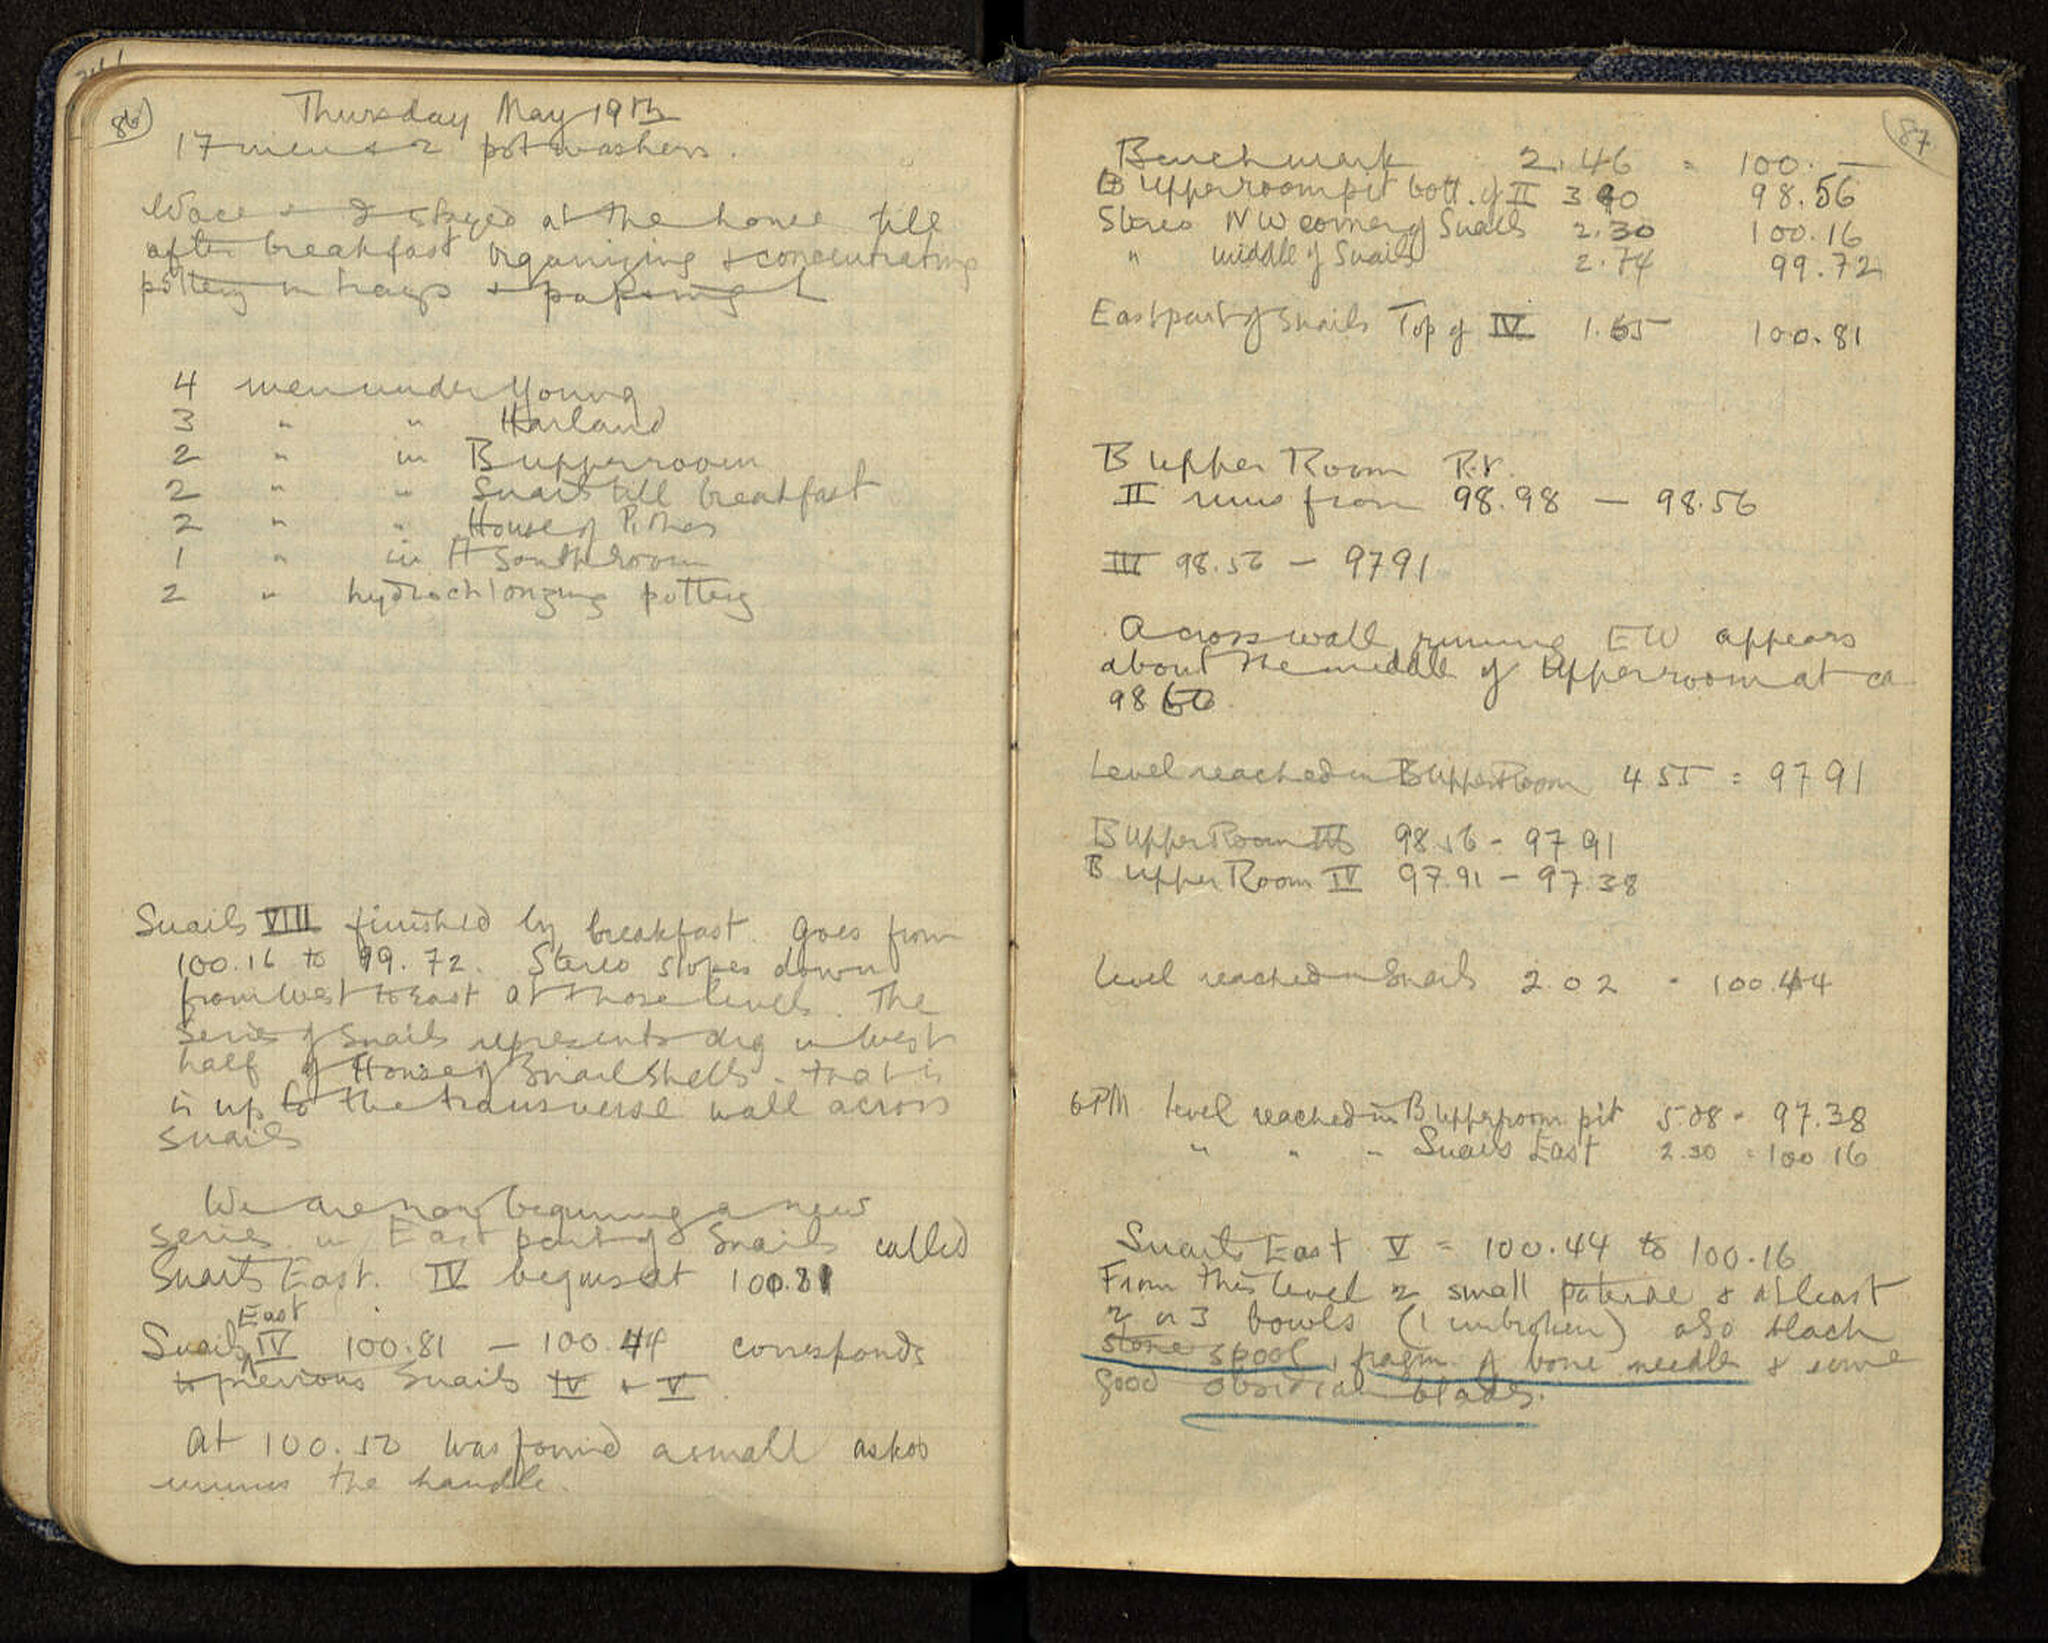 86
Thursday May 19th
17 men & 2 pot washers.
Wace & I stayed at the house till
after breakfast organizing & concentrating
pottery in trays & papsing it
4 men under Young
3 " " Harland
2 " in B upper room
2 " " Snails till breakfast
2 " " House of Pithos
1 " in A South room
2 " hydrochlorizing pottery
Snails VIII finished by breakfast. Goes from
100.16 to 99.72. Stereo slopes down
from West to East at those levels. The
series of Snails represents dig in West
half of House of Snail Shells - that is
is up to the transverse wall across
Snails
We are now beginning a new
series in East part of Snails called
Snails East. IV begins at 100.81
East
Snails IV 100.81 – 100.44 corresponds
to previous Snails IV & V.
At 100.50 was found a small askos
minus the handle.
87
Benchmark 2.46 = 100.—
B Upper room pit bott. of II 3 90 98.56
Stereo NW corner of Snails 2.30 100.16
" middle of Snails 2.74 99.72
East part of Snails Top of IV 1.65 100.81
B upper Room Pit.
II runs from 98.98 — 98.56
III 98.56 — 97 91
A cross wall running EW appears
about the middle of Upper room at ca
98 60.
Level reached in B Upper Room 4 55 = 97 91
B Upper Room III 98 56 - 97 91
B Upper Room IV 97.91 – 97.38
Level reached in Snails 2.02 = 100.44
6 PM Level reached in B upper room pit 5.08 = 97.38
" " " Snails East 2.30 = 100 16
Snails East V = 100.44 to 100.16
From this level 2 small paterae & at least
2 or 3 bowls (1 unbroken) also black
stone spool, fragm. of bone needle & some
good obsidian blades.